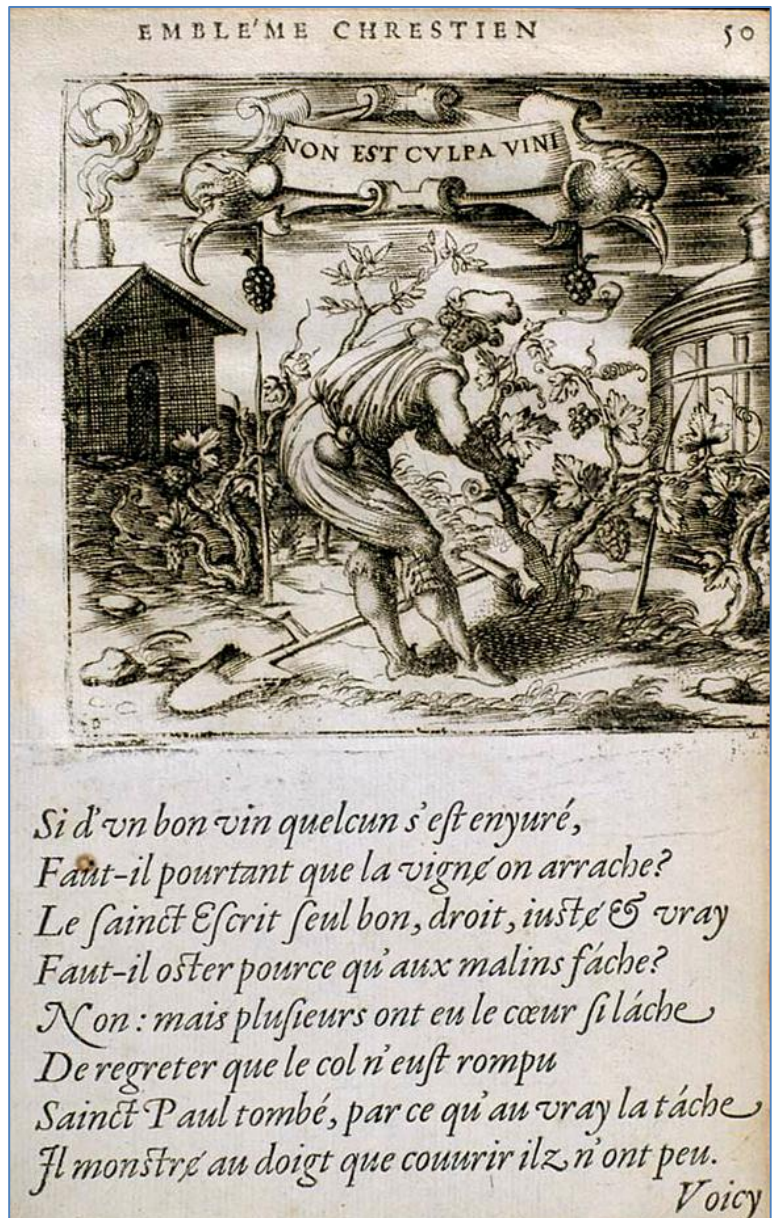 EMBLE'ME CHRESTIEN 50
NON EST CVLPA VINI
Si d'vn bon vin quelcun s'eſt enyuré,
Faut-il pourtant que la vigne̸ on arrache?
Le ſainct Eſcrit ſeul bon, droit, iuſte̸ & vray
Faut-il oſter pource qu'aux malins fáche?
Non : mais pluſieurs ont eu le cœur ſi láche
De regreter que le col n'euſt rompu
Sainct Paul tombé, par ce qu'au vray la táche
Il monſtre̸ au doigt que couurir ilz n'ont peu.
Voicy